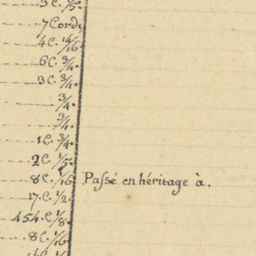 7 Cord
4C. 4/16
6C. 3/4.
3C. 3/4.
3/4.
3/4.
1C. 3/4.
2C. 1/5.
8C. 1/16 Passé en héritage à.
17.C. 1/2.
454.C 1/8.
8C. 1/16